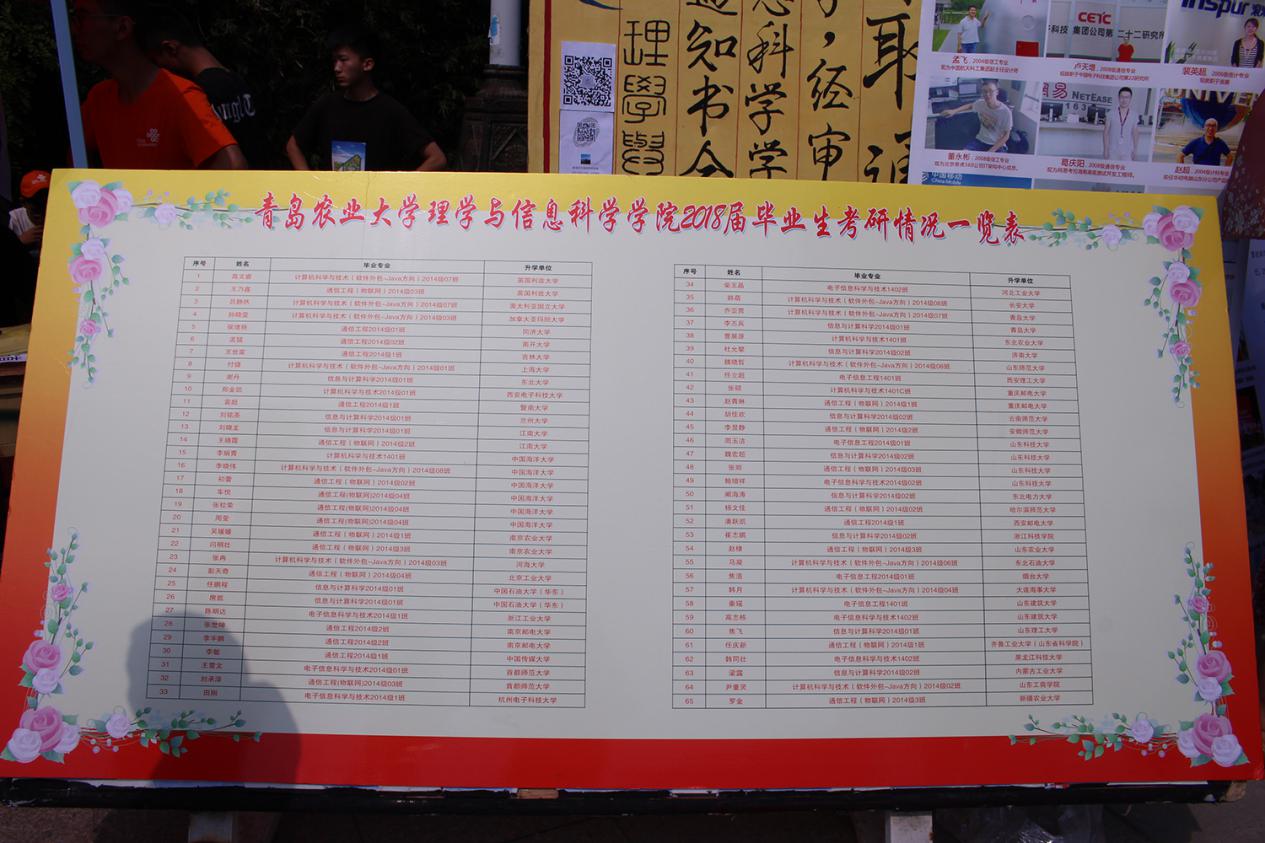 理學
知书
科学
经审
取
inspur
CETC
集团公司第二十二研究所
孟飞
卢天增
裴英超
NetEase
163
董永彬
葛庆阳
赵超
青岛农业大学理学与信息科学学院2018届毕业生考研情况一览表
序号 姓名 毕业专业 升学单位
1 计算机科学与技术（软件外包-Java方向）2014级07班 英国利兹大学
2 王乃鑫 通信工程（物联网）2014级03班 英国利兹大学
3 吕静然 计算机科学与技术（软件外包-Java方向）2014级07班 澳大利亚国立大学
4 孙晓雯 计算机科学与技术（软件外包-Java方向）2014级03班 加拿大圣玛丽大学
5 通信工程2014级01班 同济大学
6 孟猛 通信工程2014级02班 南开大学
7 通信工程2014级1班 吉林大学
8 付健 计算机科学与技术（软件外包-Java方向）2014级01班 上海大学
9 谢丹 信息与计算科学2014级01班 东北大学
10 郑金凯 计算机科学与技术2014级01班 西安电子科技大学
11 袁超 通信工程2014级1班 暨南大学
12 刘铭基 信息与计算科学2014级01班 兰州大学
13 刘晓龙 信息与计算科学2014级01班 江南大学
14 王晴霞 通信工程（物联网）2014级2班 江南大学
15 李炳青 计算机科学与技术1401班 中国海洋大学
16 李晓伟 计算机科学与技术（软件外包-Java方向）2014级08班 中国海洋大学
17 初蕾 通信工程（物联网）2014级02班 中国海洋大学
18 车悦 通信工程(物联网)2014级04班 中国海洋大学
19 张松荣 通信工程(物联网)2014级04班 中国海洋大学
20 周莹 通信工程(物联网)2014级04班 中国海洋大学
21 吴媛媛 通信工程（物联网）2014级1班 南京农业大学
22 闫明壮 通信工程（物联网）2014级3班 南京农业大学
23 张冉 计算机科学与技术（软件外包-Java方向）2014级03班 河海大学
24 彭天奇 通信工程（物联网）2014级04班 北京工业大学
25 任鹏程 信息与计算科学2014级01班 中国石油大学（华东）
26 房凯 信息与计算科学2014级01班 中国石油大学（华东）
27 陈明达 电子信息科学与技术2014级1班 浙江工业大学
28 张世坤 通信工程2014级2班 南京邮电大学
29 李宇鹏 通信工程2014级2班 南京邮电大学
30 李敏 通信工程2014级1班 中国传媒大学
31 王雪文 电子信息科学与技术2014级01班 首都师范大学
32 刘承泽 通信工程(物联网)2014级03班 首都师范大学
33 田刚 电子信息科学与技术2014级1班 杭州电子科技大学
序号 姓名 毕业专业 升学单位
34 柴玉晶 电子信息科学与技术1402班 河北工业大学
35 韩萌 计算机科学与技术（软件外包-Java方向）2014级08班 长安大学
36 乔亚茜 计算机科学与技术（软件外包-Java方向）2014级07班 青岛大学
37 李杰兵 信息与计算科学2014级01班 青岛大学
38 曹展源 计算机科学与技术1401班 东北农业大学
39 杜光擎 信息与计算科学2014级02班 济南大学
40 魏晓哲 计算机科学与技术（软件外包-Java方向）2014级06班 山东师范大学
41 任立超 电子信息工程1401班 西安理工大学
42 张硕 计算机科学与技术1401C班 重庆邮电大学
43 赵青琳 通信工程（物联网）2014级1班 重庆邮电大学
44 胡佳欢 信息与计算科学2014级02班 云南师范大学
45 李昱静 通信工程（物联网）2014级2班 安徽师范大学
46 周玉洁 电子信息工程2014级01班 山东科技大学
47 魏宏超 信息与计算科学2014级02班 山东科技大学
48 张帅 通信工程（物联网）2014级03班 山东科技大学
49 鲍增祥 电子信息工程2014级02班 山东科技大学
50 阚海涛 信息与计算科学2014级02班 东北电力大学
51 杨文佳 通信工程（物联网）2014级02班 哈尔滨师范大学
52 潘跃凯 通信工程2014级1班 西安邮电大学
53 崔志鹏 信息与计算科学2014级02班 浙江科技学院
54 赵棣 通信工程（物联网）2014级3班 山东农业大学
55 马凝 计算机科学与技术（软件外包-Java方向）2014级06班 东北石油大学
56 焦浩 电子信息工程2014级01班 烟台大学
57 韩月 计算机科学与技术（软件外包-Java方向）2014级04班 大连海事大学
58 秦瑶 电子信息工程1401班 山东建筑大学
59 高志栋 电子信息科学与技术1402班 山东建筑大学
60 焦飞 信息与计算科学2014级01班 山东理工大学
61 任庆新 通信工程（物联网）2014级1班 齐鲁工业大学（山东省科学院）
62 韩同壮 电子信息科学与技术1402班 黑龙江科技大学
63 梁露 信息与计算科学2014级02班 内蒙古工业大学
64 尹童灵 计算机科学与技术（软件外包-Java方向）2014级02班 山东工商学院
65 罗金 通信工程（物联网）2014级3班 新疆农业大学